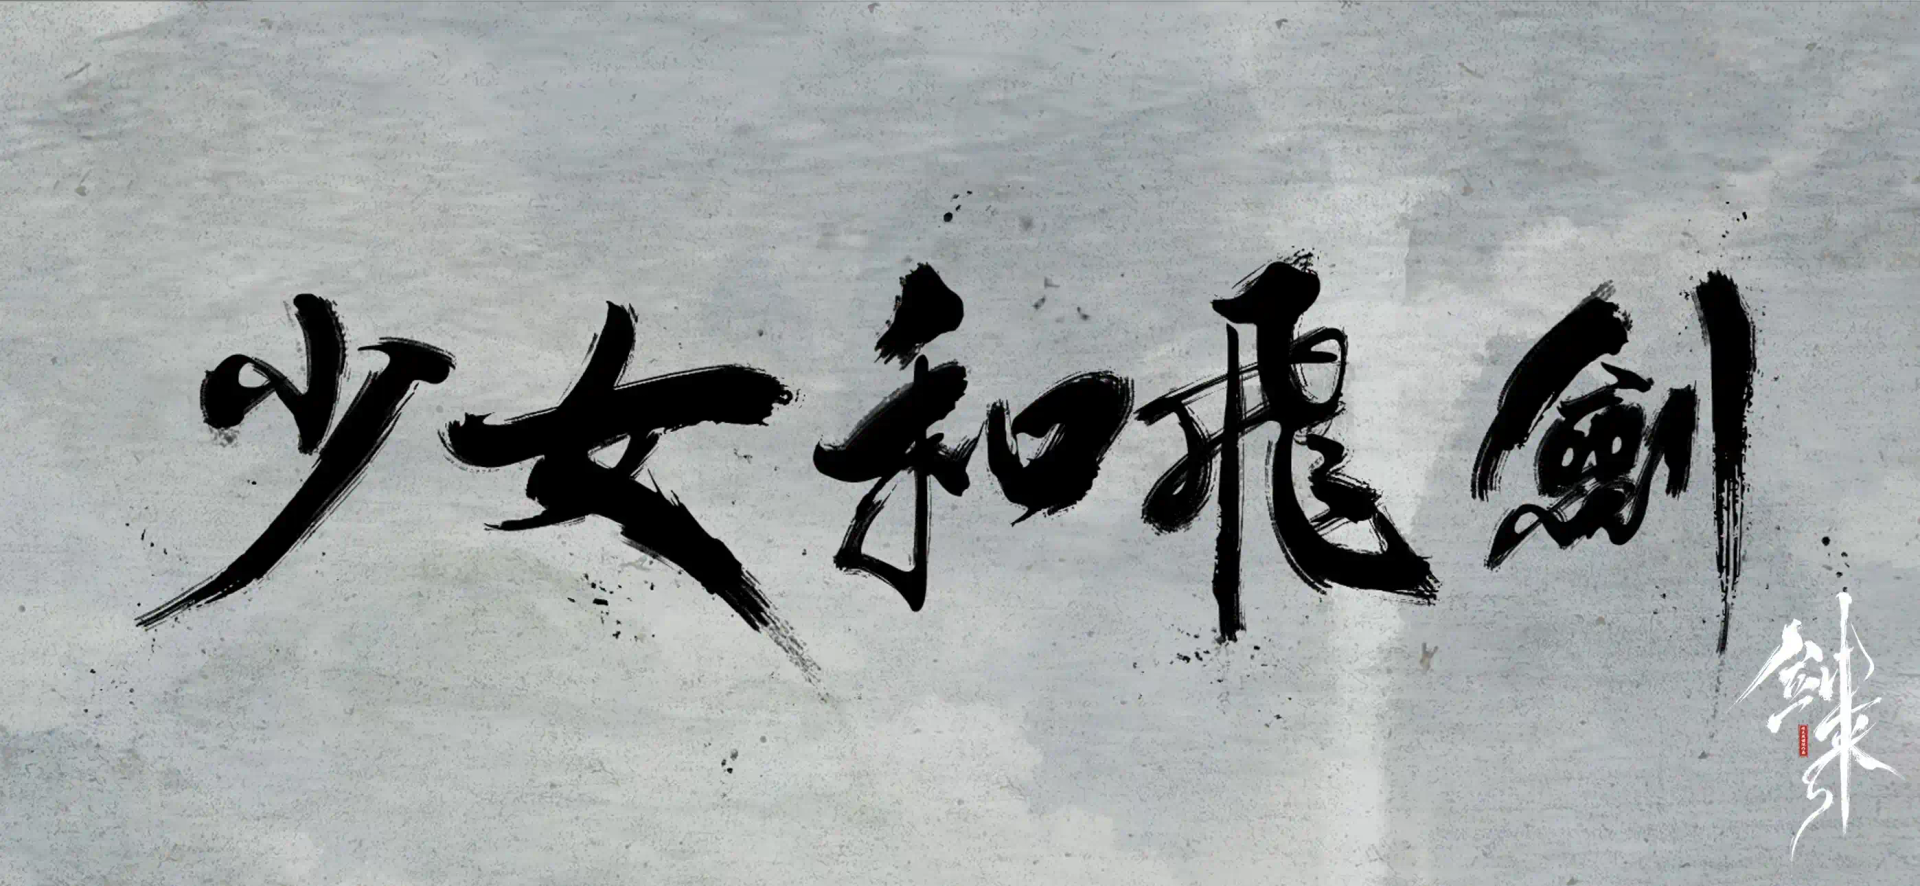 少女和飛劍
劍来